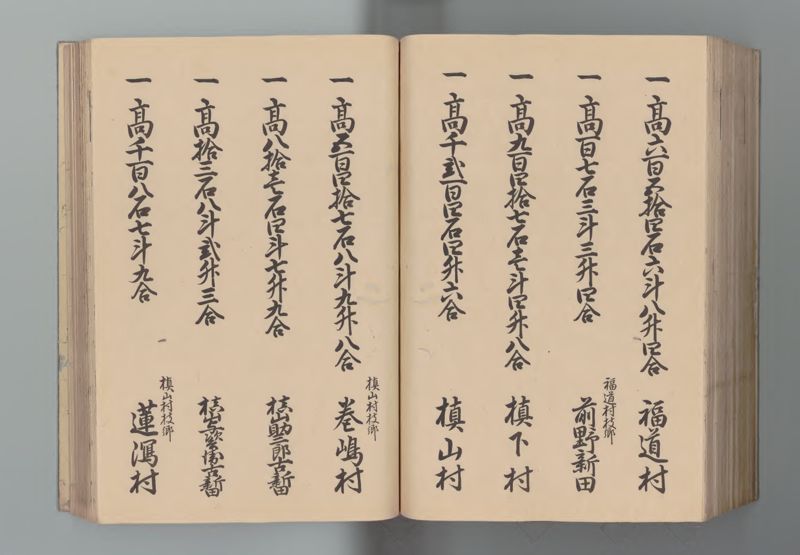 一 高六百五拾四石六斗八升四合 福道村
一 高百七石三斗三升四合 福道村枝郷 前野新田
一 高九百四拾七石壱斗四升八合 槙下村
一 高千弐百四石四升六合 槙山村
一 高五百四拾七石八斗九升八合 槙山村枝郷 巻嶋村
一 高八拾壱石四斗七升九合 槙山助三郎古新田
一 高拾三石八斗弐升三合
一 高千百八石七斗九合 槙山村枝郷 蓮潟村